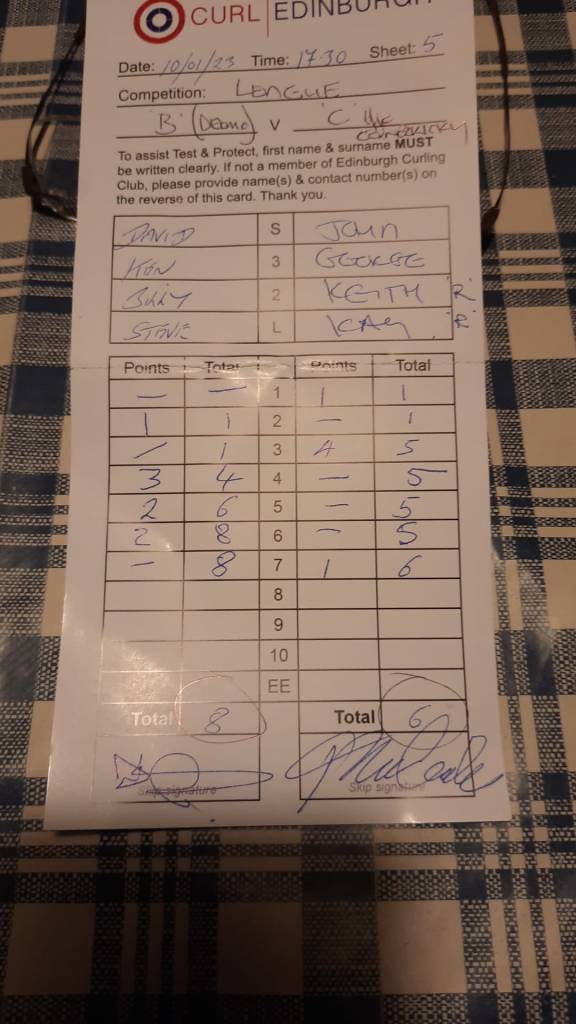 CURL EDINBURGH
Date: 10/01/23 Time: 17-30 Sheet: 5
Competition: LEAGUE
'B' v 'C'
To assist Test & Protect, first name & surname MUST
be written clearly. If not a member of Edinburgh Curling
Club, please provide name(s) & contact number(s) on
the reverse of this card. Thank you.
DAVID S JOHN
KEN 3 GEORGE
BILLY 2 KEITH 'R'
STEVIE L KAY 'R'
Points Total Points Total
— — 1 1 1
1 1 2 — 1
/ 1 3 4 5
3 4 4 — 5
2 6 5 — 5
2 8 6 — 5
- 8 7 1 6
8
9
10
EE
Total 8 Total 6
Skip signature Skip signature